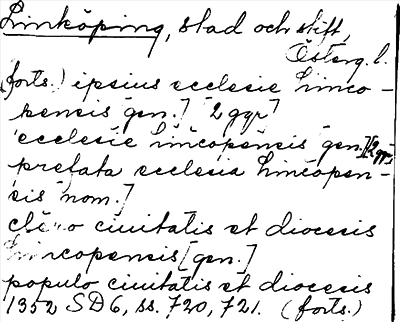 Linköping, stad och stift,
Österg. l.
(forts.) ipsius ecclesie Linco-
pensis [gen.] [2 ggr]
ecclesie Lincopensis [gen.] [2 ggr]
prefata ecclesia Lincopen-
sis [nom.]
clero ciuitatis et diocesis
Lincopensis [gen.]
populo ciuitatis et diocesis
1352 SD 6, ss. 720, 721. (forts.)